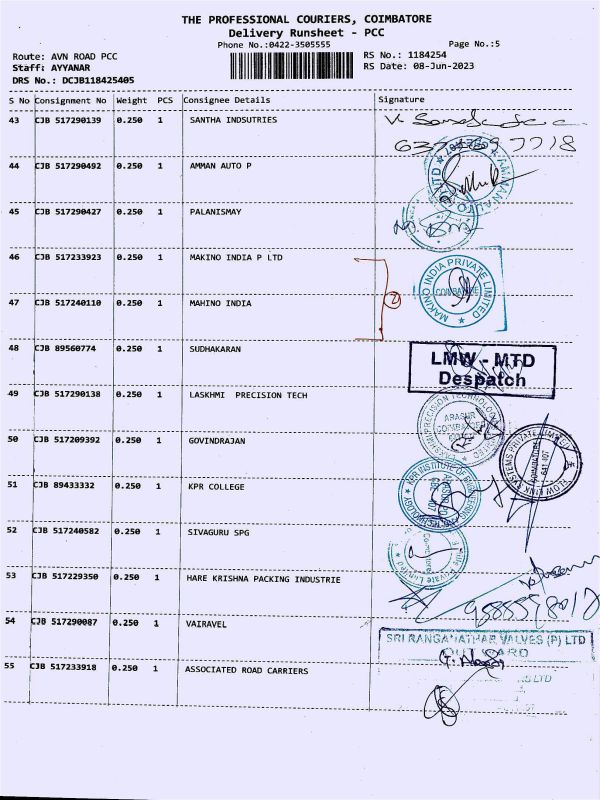 THE PROFESSIONAL COURIERS, COIMBATORE
Delivery Runsheet - PCC
Phone No.:0422-3505555
Page No.:5
Route: AVN ROAD PCC
RS No.: 1184254
Staff: AYYANAR
RS Date: 08-Jun-2023
DRS No.: DCJB118425405
S No Consignment No Weight PCS Consignee Details Signature
43 CJB 517290139 0.250 1 SANTHA INDSUTRIES
44 CJB 517290492 0.250 1 AMMAN AUTO P
45 CJB 517290427 0.250 1 PALANISMAY
46 CJB 517233923 0.250 1 MAKINO INDIA P LTD
MAKINO INDIA PRIVATE LIMITED
COIMBATORE
2
47 CJB 517240110 0.250 1 MAHINO INDIA
48 CJB 89560774 0.250 1 SUDHAKARAN
LMW - MTD
Despatch
49 CJB 517290138 0.250 1 LASKHMI PRECISION TECH
50 CJB 517209392 0.250 1 GOVINDRAJAN
51 CJB 89433332 0.250 1 KPR COLLEGE
52 CJB 517240582 0.250 1 SIVAGURU SPG
53 CJB 517229350 0.250 1 HARE KRISHNA PACKING INDUSTRIE
54 CJB 517290087 0.250 1 VAIRAVEL
SRI RANGANATHAR VALVES (P) LTD
55 CJB 517233918 0.250 1 ASSOCIATED ROAD CARRIERS